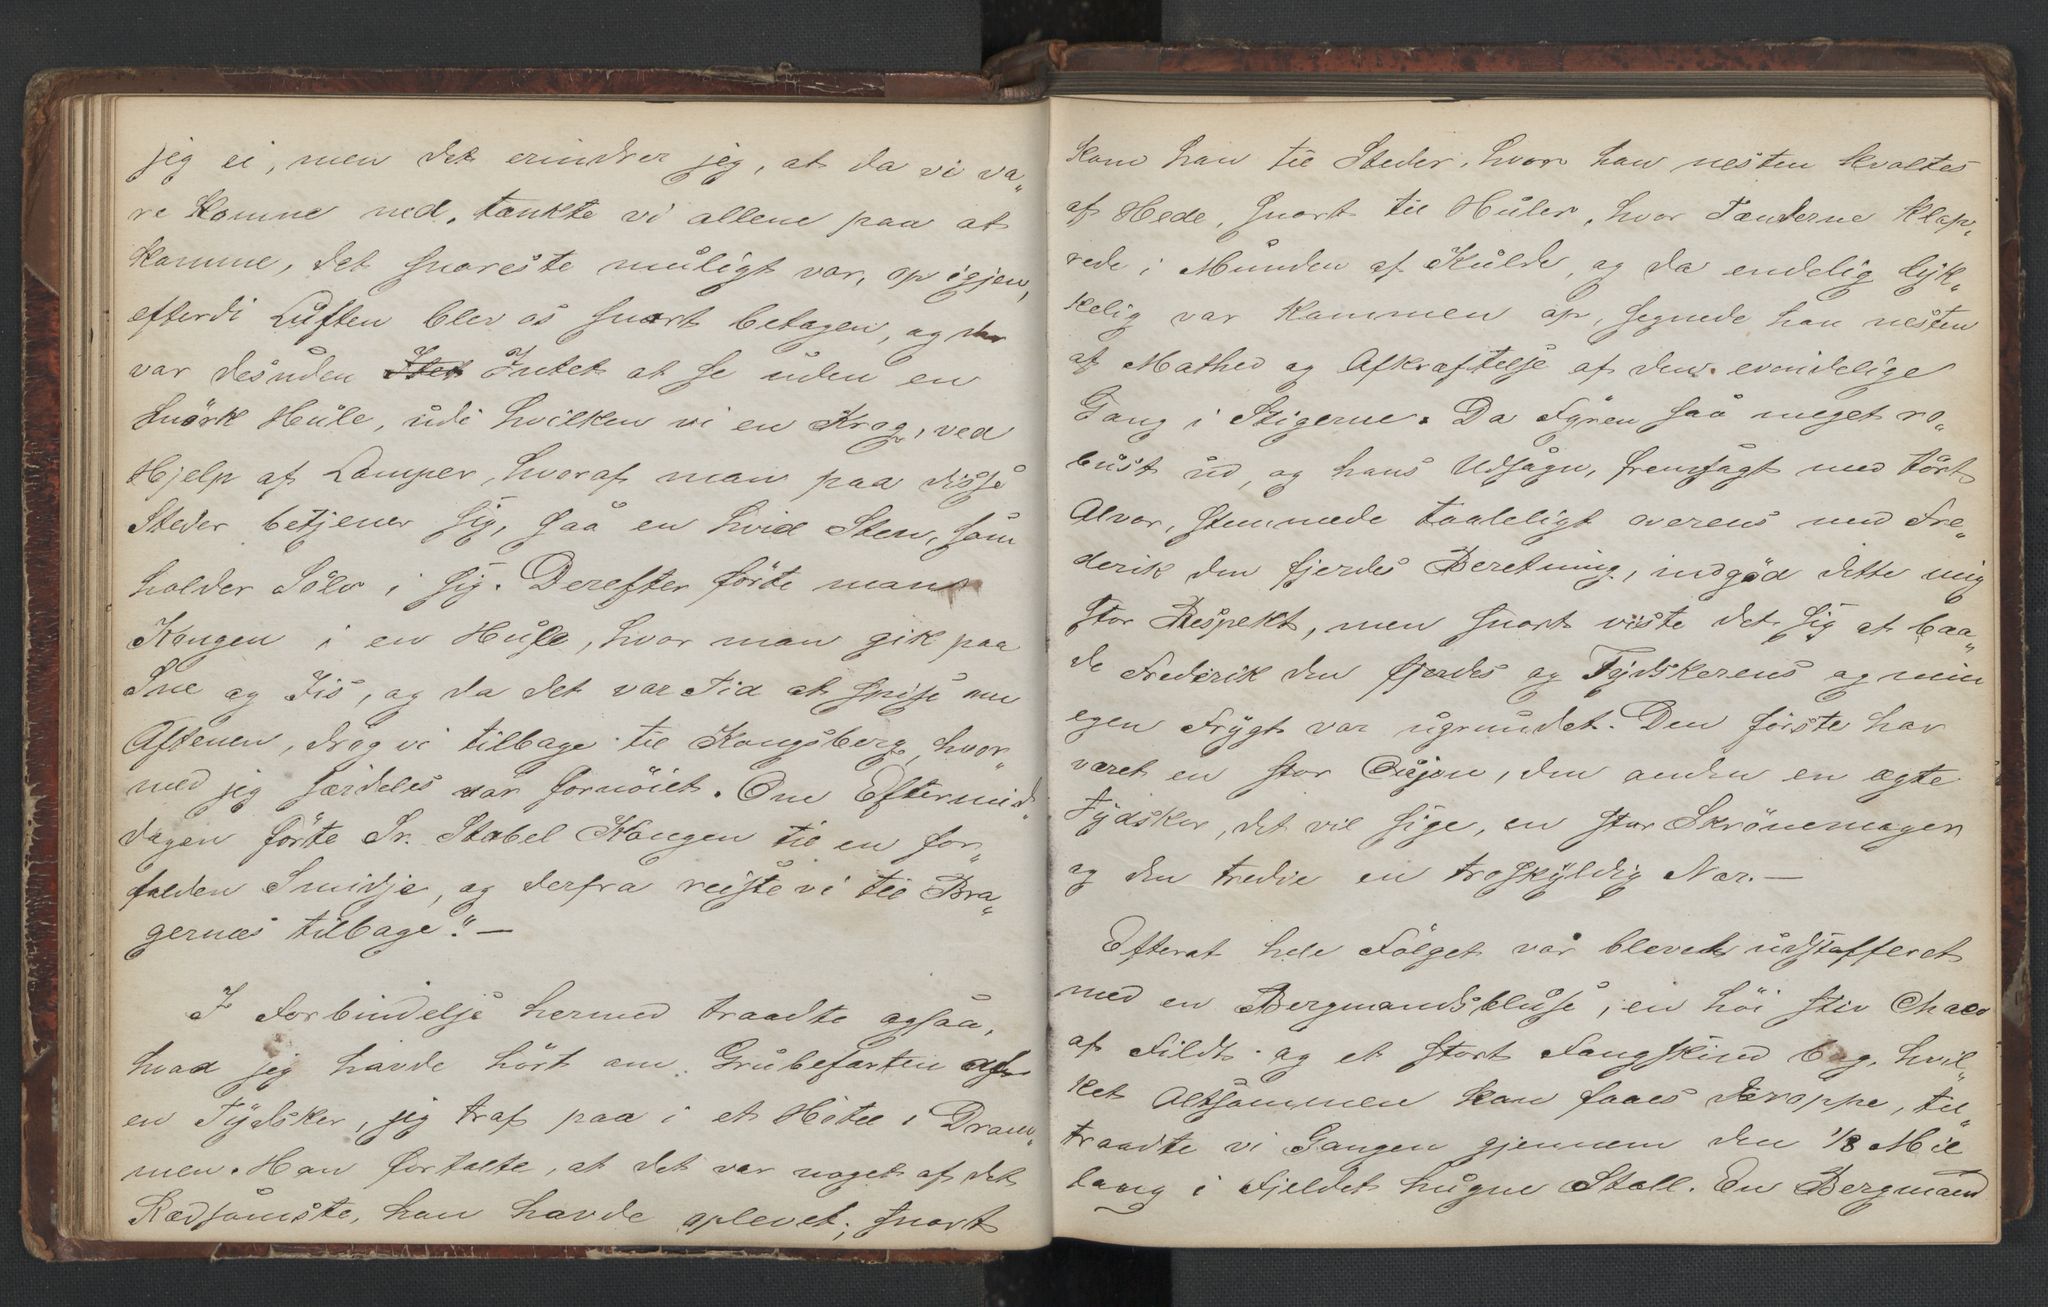 jeg ei, men det erindrer jeg, at da vi va„
re komne ned, tænkte vi allene paa at
komme, det snareste muligt var, op igjen,
efterdi Luften blev os snart betagen, og der
var desuden Intet at se uden en
snörk Hule, udi hvilken vi en Krog, ved
Hjelp af Lamper, hvoraf man paa disse
Steder betjener sig, saa en hvid Sten, som
holder Sölv i sig. Derefter förte man
Kongen i en Hule, hvor man gik paa
Sne og Iis, og da det var Tid at spise om
Aftenen, drog vi tilbage til Kongsberg, hvor„
med jeg særdeles var fornöiet. Om Eftermid„
dagen förte Sr. Stabel Kongen til en for„
falden Smidje, og derfra reiste vi til Bra„
gernæs tilbage". —
I Forbindelse hermed traadte ogsaa,
hvad jeg havde hört om Grubefarten af
en Tydsker, jeg traf paa i et Hotel i Dram„
men. Han fortalte, at det var noget af det
Rædsomste, han havde oplevet; snart
kom han til Steder, hvor han nesten kvaltes
af Hede, snart til Huler, hvor Tænderne klap„
rede i Munden af Kulde, og da endelig lyk„
kelig var kommen op, segnede han nesten
af Mathed og Afkræftelse af den evindelige
Gang i Stigerne. Da Fyren saa meget ro„
bust ud, og hans Udsagn, fremsagt med tört
Alvor, stemmede taaleligt overens med Fre„
derik den fjerdes Beretning, indgöd dette mig
stor Respekt, men snart viste det sig at baa„
de Frederik den fjerdes og Tydskerens og min
egen Frygt var ugrundet. Den förste har
været en stor Cujon, den anden en ægte
Tydsker, det vil sige, en stor Skrönemager
og den tredie en troskyldig Nar. —
Efterat hele Fölget var blevet udstafferet
med en Bergmandsbluse, en höi stiv Chaco
af Fildt og et stort Fangskind bag, hvil„
ket Altsammen kan faaes droppe, til„
traadte vi Gangen gjennem den 1/8 Mil
lang i Fjeldet hugne Stoll. En Bergmand